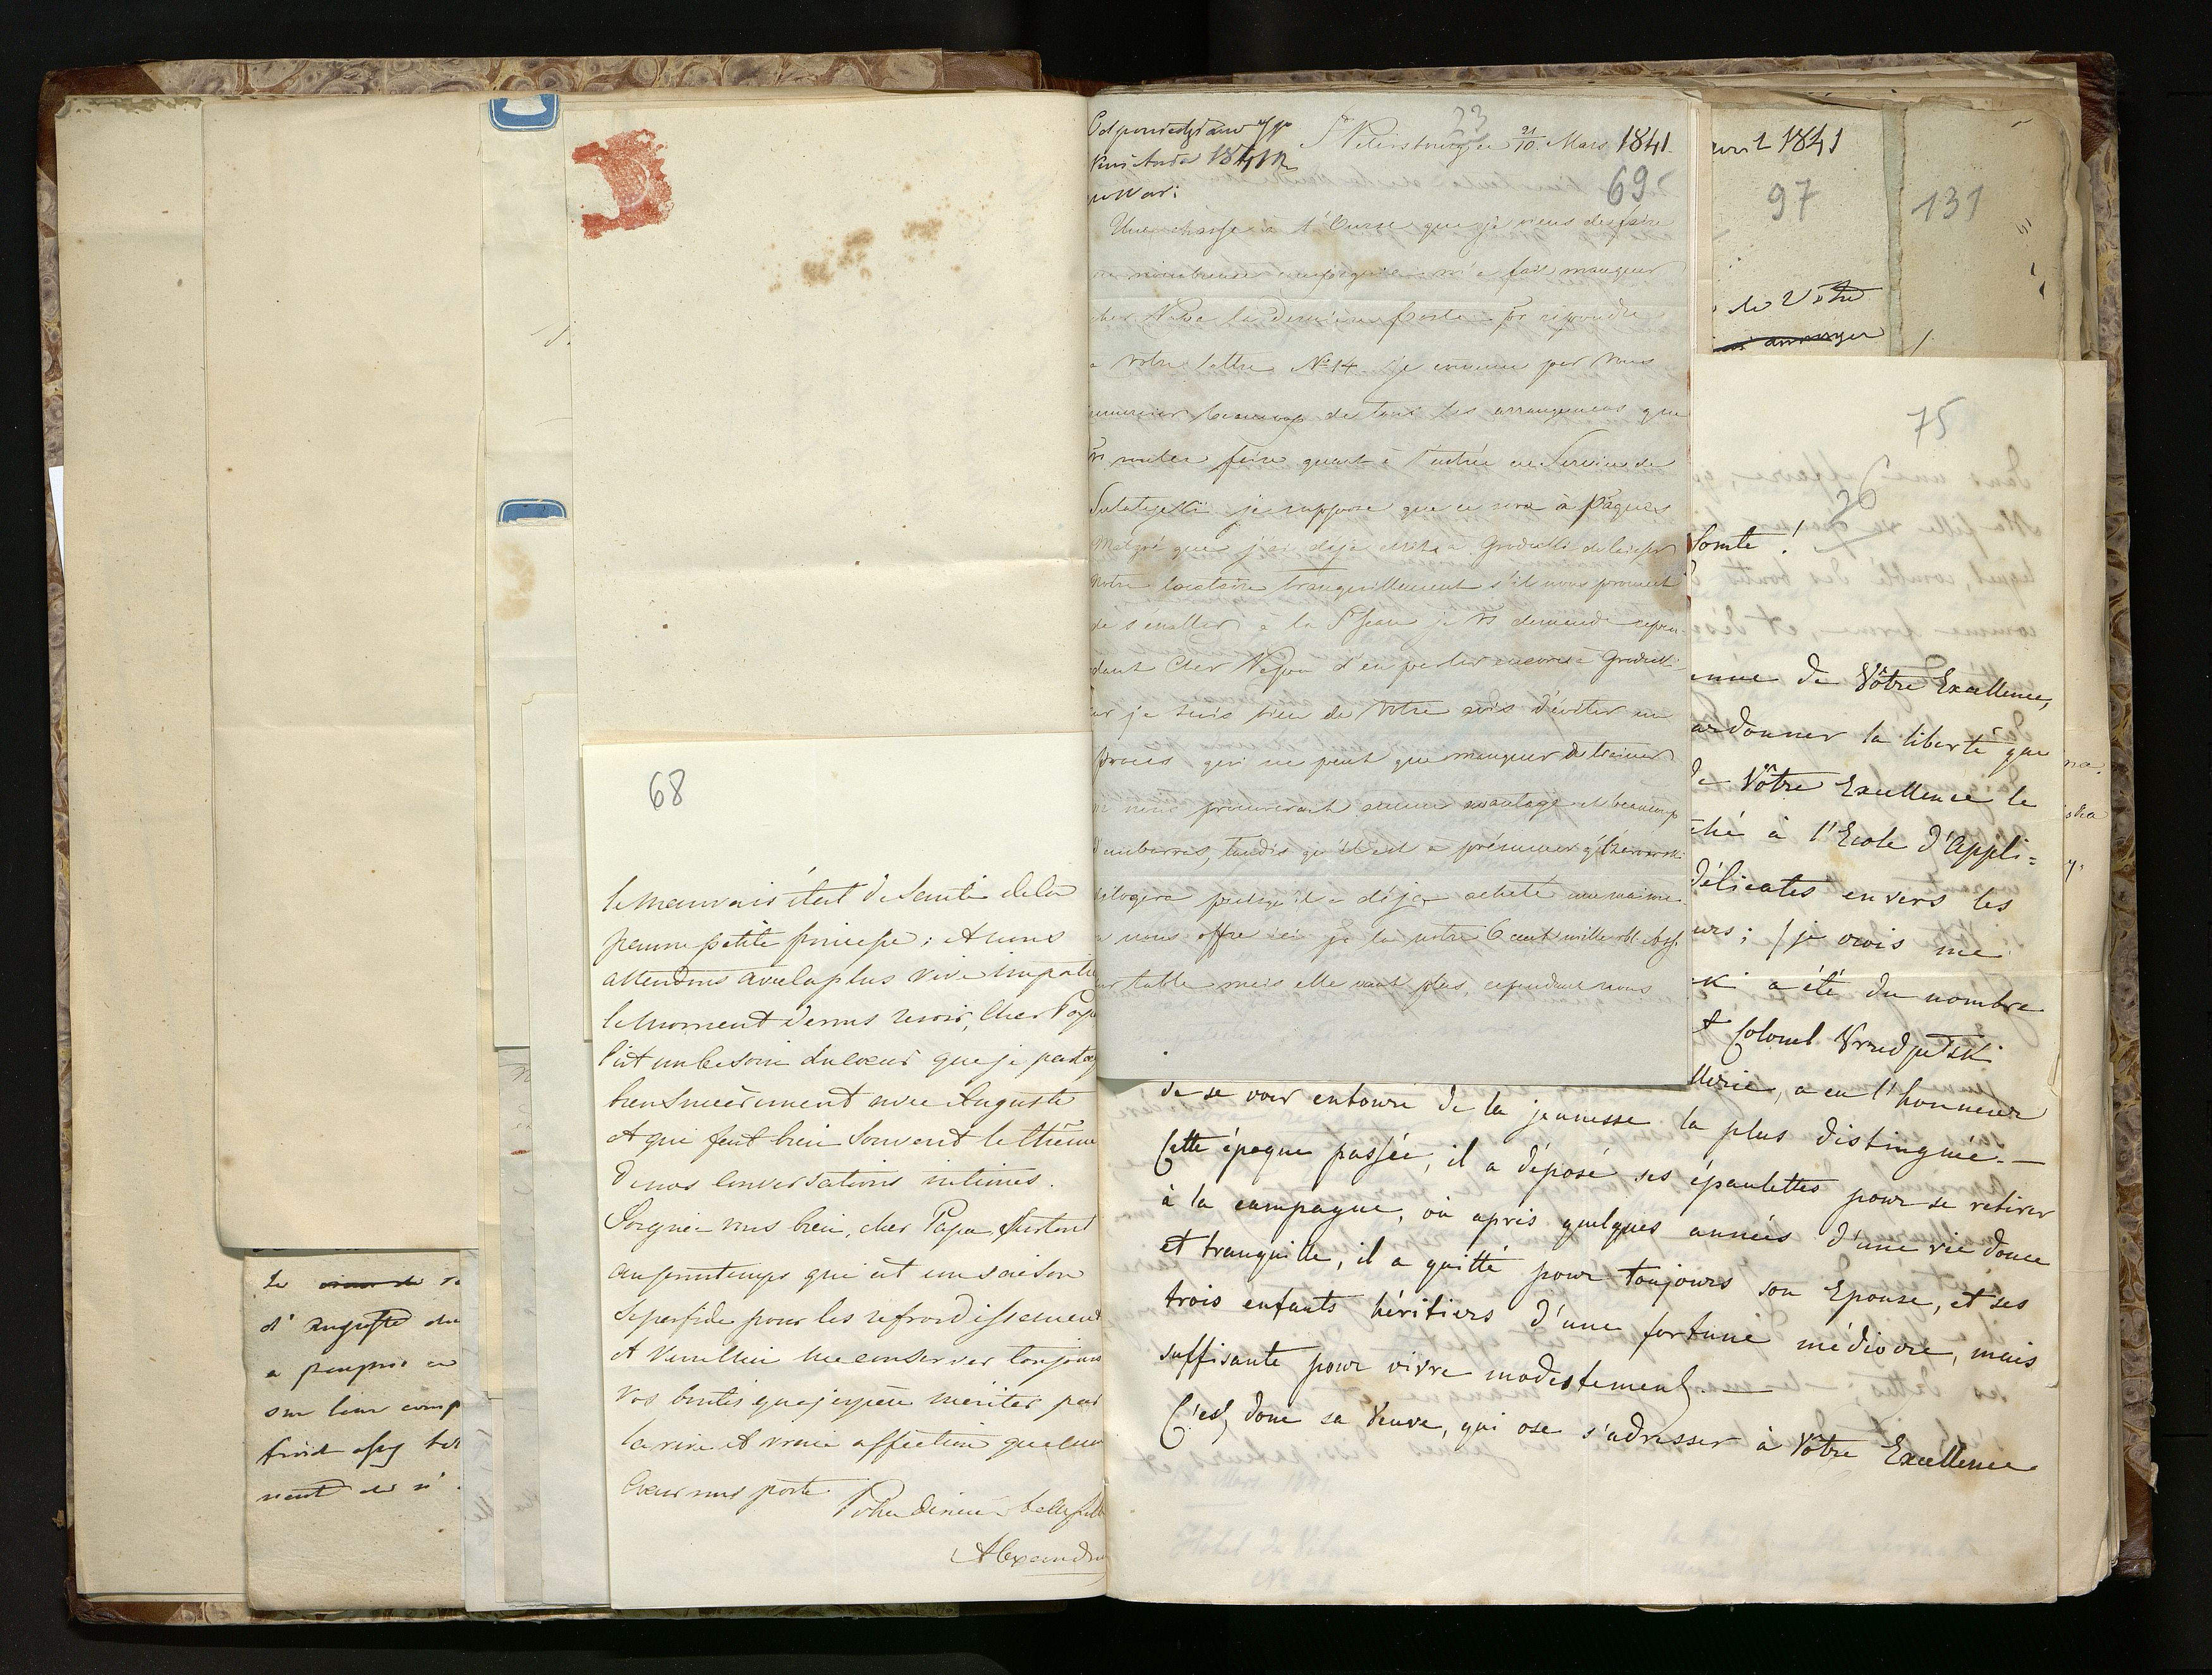 68
le mauvais état de Santé de la
pauvre petite princesse ; et nous
attendons avec la plus vive impatie
le moment de vous revoir, Cher Papa
C'est un besoin du coeur que je partag
bien Sincèrement avec Auguste
et qui fait bien Souvent le thème
de nos Conversations intimes.
Soignez vous bien, cher Papa, Surtout
au printemps qui est une saison
Si perfide pour les refroidissement
et Veuillez me conserver toujours
Vos bontés que j'espère mériter par
la vive et vraie affection que leur
Coeur vous porte
Votre dévouée belle fille
Alexandra
Le
d' Auguste du
a peuprès ce
sur leur comp
froid assez
1841
23
St Petersbourg ce 21/10 Mars 1841.
69
Une chasse à l'Ourse que je viens de faire
m'a fait manquer
cher Papa la dernière poste pr répondre
a votre lettre No 14. Je commence par vous
remercier beaucoup de tous les arrangemens que
vs voulez faire quant à l'entrée en Service de
je suppose que ce sera à Pâques
Malgré que j'ai déjà écrit a de laisser
notre locataire tranquillement s'il nous promet
de s'en aller a la St Jean je vs demande cepen-
dant Cher Papa d'en parler encore à
car je suis bien de votre avis d'éviter un
procès qui ne peut que manquer de trainer
en nous procurant aucun avantage et beaucoup
d'embarras, tandis qu'il est a présumer
puisqu'il a déjà acheté une maison.
on nous offre ici pr la notre 6 cent mille rbl. Ass.
sur table mais elle vaut plus, cependant nous
avril 1841
97
de Votre
arranger
131
75
20
Comte !
enue de Vôtre Excellence,
ardonner la liberté que
de Vôtre Excellence le
ché à l'Ecole d'Appli=
délicates envers les
urs ; (je crois me
ki a été du nombre
t Colonel
llerie, a eu l'honneur
de se voir entouré de la jeunesse la plus distinguée.—
Cette époque passée, il a déposé ses épaulettes pour se retirer
à la campagne, où après quelques années d'une vie douce
et tranquille, il a quitté pour toujours son Epouse, et ses
trois enfants héritiers d'une fortune médiocre, mais
suffisante pour vivre modestement.—
C'est donc sa Veuve, qui ose s'adresser à Vôtre Excellence